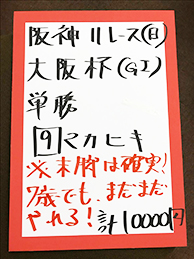 阪神11レース(日)
大阪杯(GI)
単勝
9マカヒキ
※末脚は確実!
7歳でも、まだまだ
やれる!計10000円